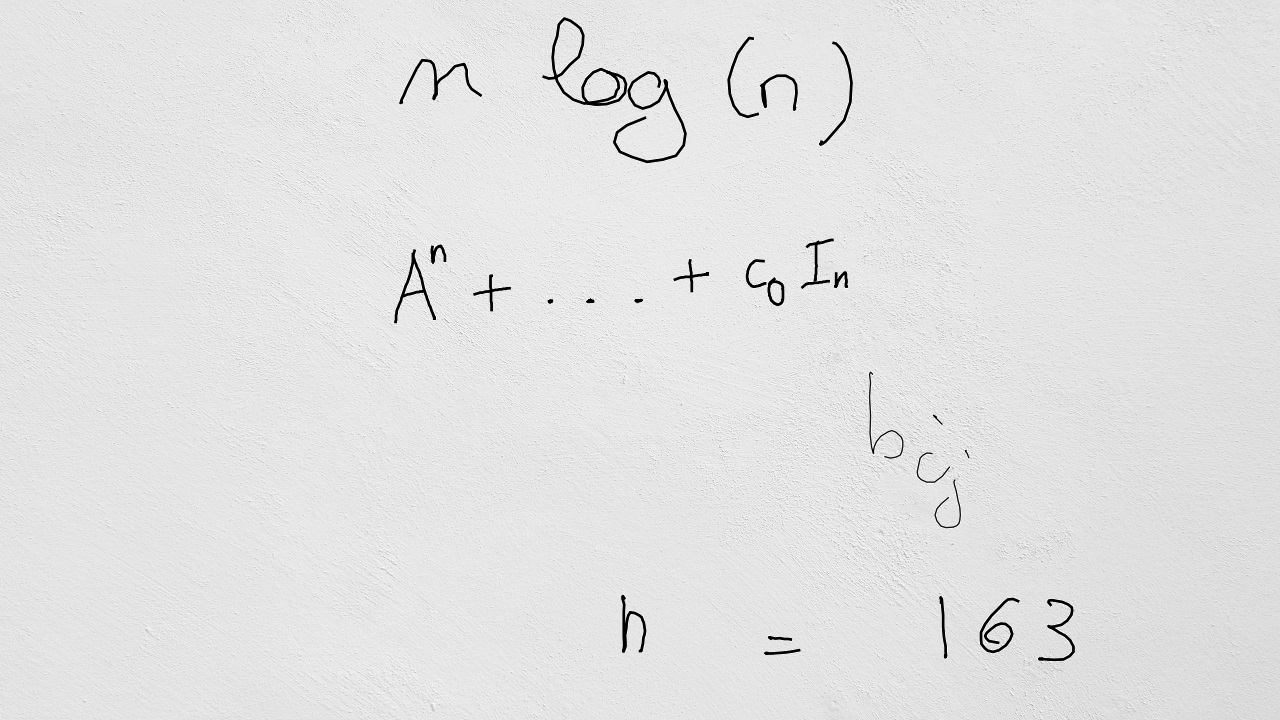 n log (n)
Aⁿ + .... + c₀Iₙ
bᵢⱼ
n = 163